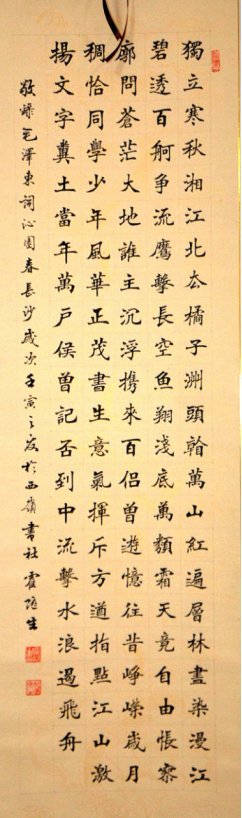 獨立寒秋湘江北厺橘子洲頭看萬山紅遍層林盡染漫江
碧透百舸争流鷹擊長空魚翔淺底萬類霜天竟自由悵寥
廓問蒼茫大地誰主沉浮携來百侣曾遊憶往昔崢嶸歲月
稠恰同學少年風華正茂書生意氣揮斥方遒指點江山激
揚文字糞土當年萬户侯曾記否到中流擊水浪遏飛舟
敬録毛澤東詞沁園春長沙歲次壬寅之夏於西嶺書社霍生